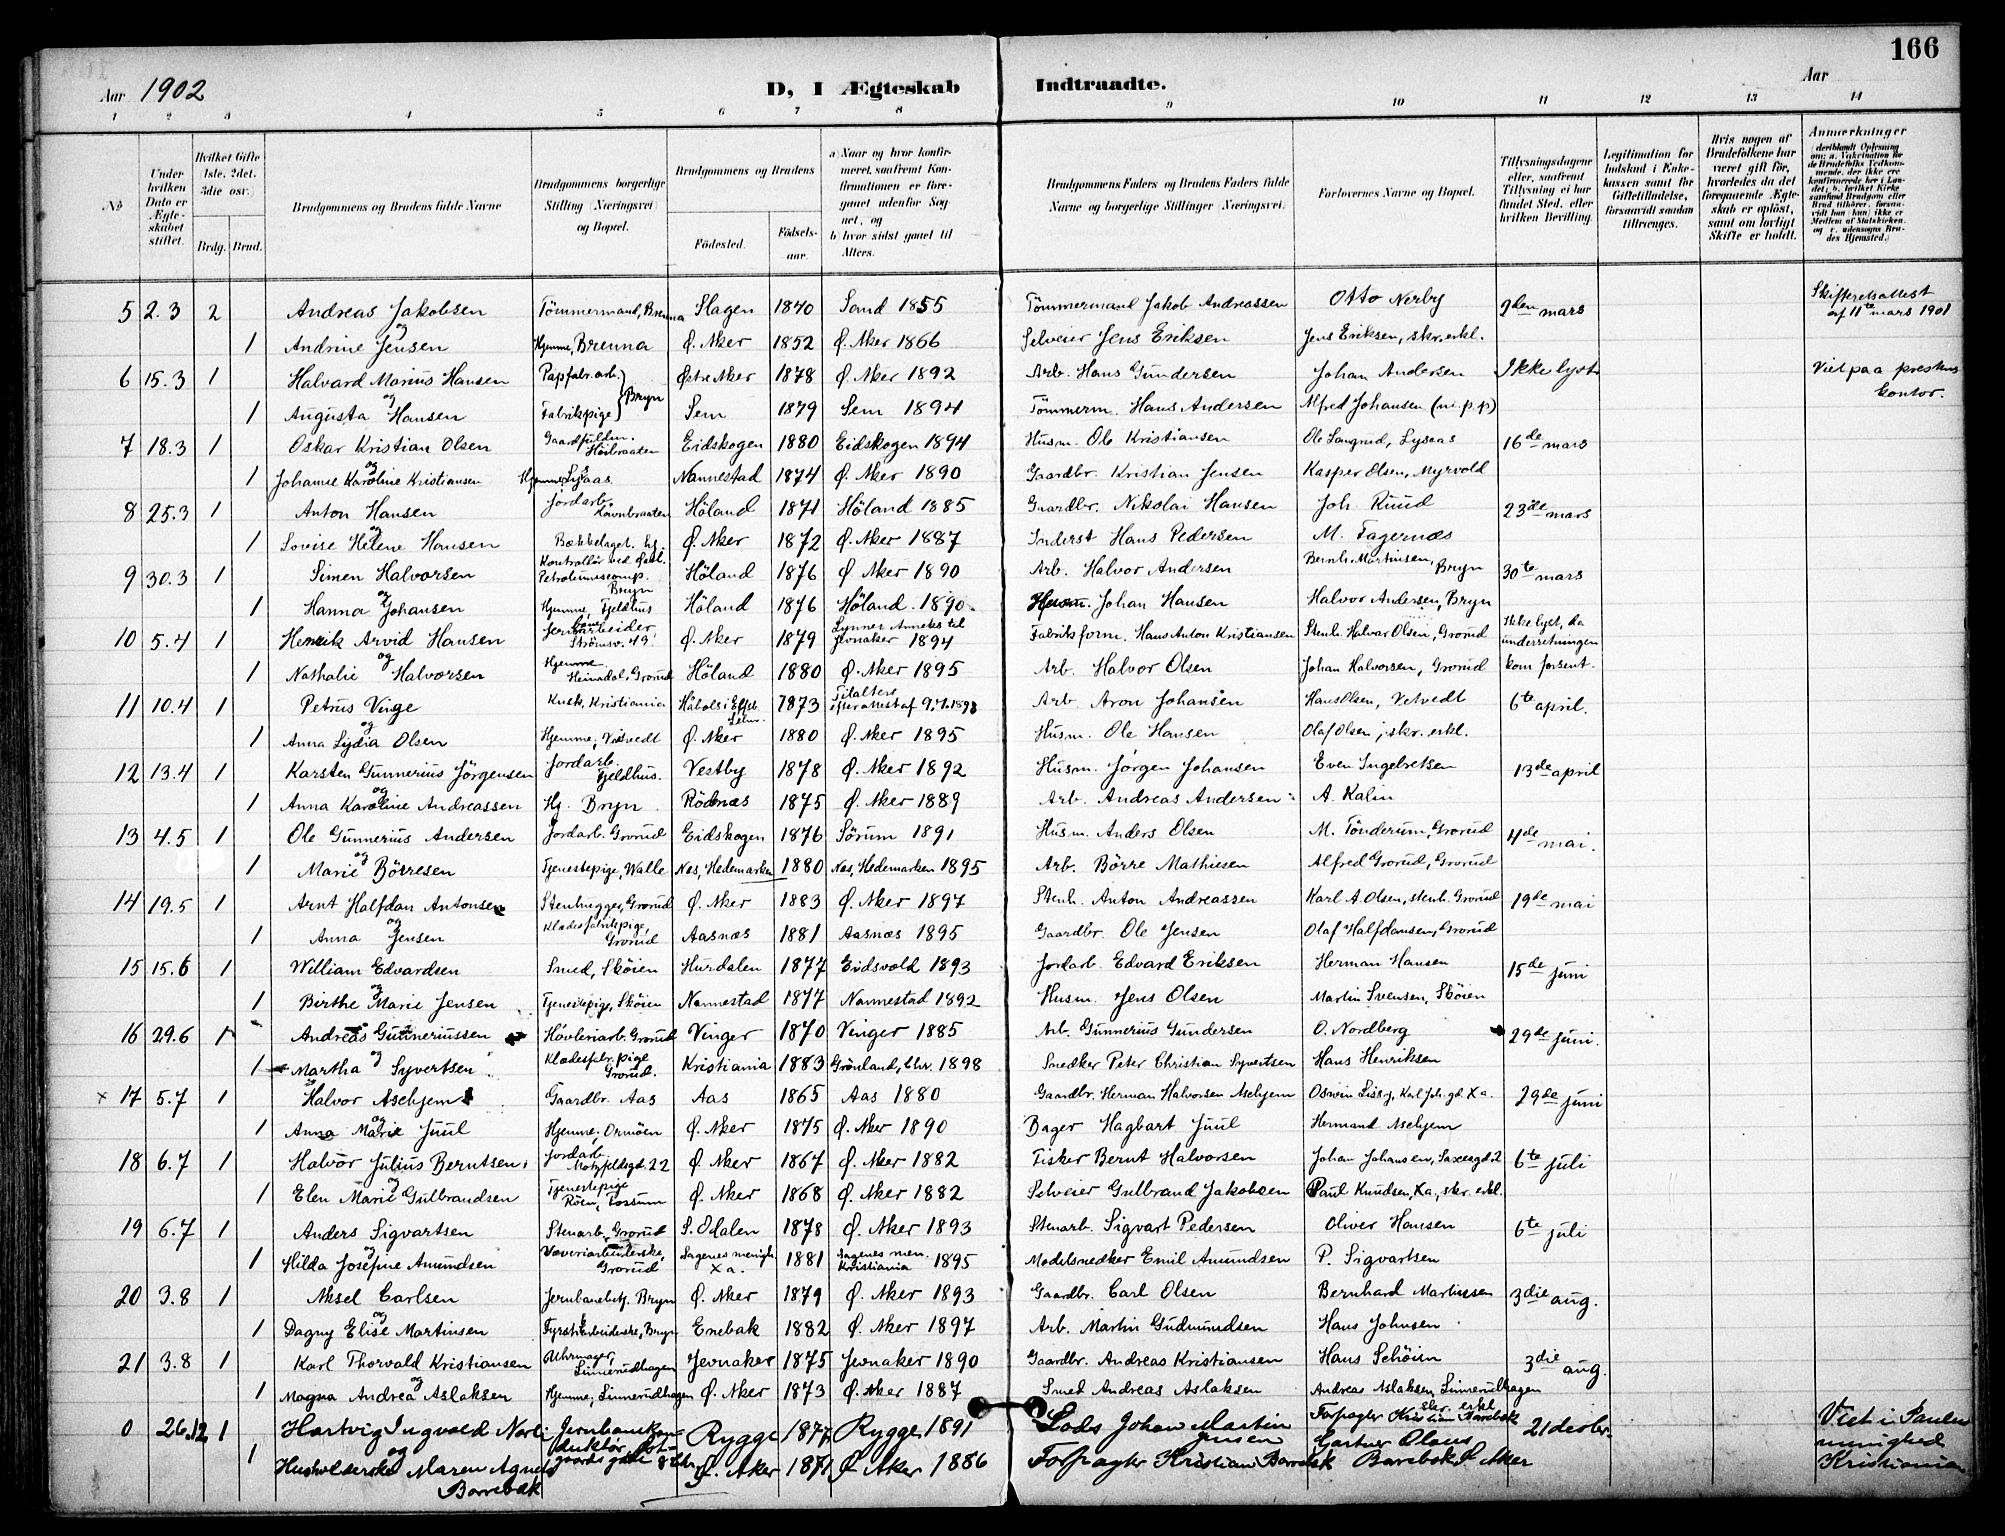 166
Aar 1902 D, I Ægteskab Indtraadte. Aar
1 2 3 4 5 6 7 8 9 10 11 12 13 14
No
Under hvilken Dato er Ægteskabet stiftet.
Hvilket Gifte 1ste, 2det, 3die osv.
Brdg. Brud.
Brudgommens og Brudens fulde Navne
Brudgommens borgerlige Stilling (Næringsvei) og Bopæl.
Brudgommens og Brudens
Fødested. Fødselsaar.
a) Naar og hvor konfirmeret, saafremt Konfirmationen er foregaaet udenfor Sognet, og
b) hvor sidst gaaet til Alters.
Brudgommens Faders og Brudens Faders fulde Navne og borgerlige Stillinger (Næringsvei)
Forlovernes Navne og Bopæl.
Tillysningsdagene eller, saafremt Tillysning ei har fundet Sted, efter hvilken Bevilling.
Legitimation for Indskud i Enkekassen samt for Giftetilladelse, forsaavidt saadan tiltrænges.
Hvis nogen af Brudefolkene har været gift før, hvorledes da det foregaaende Ægteskab er opløst, samt om lovligt Skifte er holdt.
Anmærkninger
5 2.3 2 Andreas Jakobsen Tömmermand, Brenna Slagen 1840 Sand 1855 Tömmermand Jakob Andreassen Otto Nerby 9den mars Skifteretsattest af 11te mars 1901
og
1 Andrine Jensen Hjemme, Brenna Ø. Aker 1852 Ø. Aker 1866 Selveier Jens Eriksen Jens Eriksen, skr. erkl.
6 15.3 1 Halvard Marius Hansen Papfabr.arb. Østre Aker 1878 Ø. Aker 1892 Arb. Hans Gundersen Johan Andersen Ikke lyst Viet paa prestens kontor.
og Bryn
1 Augusta Hansen Fabrikpige Sem 1879 Sem 1894 Tömmerm. Hans Andersen Alfred Johansen (m.p.p)
7 18.3 1 Oskar Kristian Olsen Eidskogen 1880 Eidskogen 1894 Husm. Ole Kristiansen 16de mars
og
1 Johanne Karoline Kristiansen Nannestad 1874 Ø. Aker 1890 Gaardbr. Kristian Jensen Kasper Olsen, Myrvold
8 25.3 1 Anton Hansen Jordarb. Höland 1871 Höland 1885 Gaardbr. Nikolai Hansen Joh. Ruud 23de mars
og
1 Lovise Helene Hansen Bækkelaget. Ø. Aker 1872 Ø. Aker 1887 Inderst Hans Pedersen M. Fagernæs
9 30.3 1 Simen Halvorsen Kontrollör ved Petroleumscomp. Bryn Höland 1876 Ø. Aker 1890 Arb. Halvor Andersen Bernh. Martinsen, Bryn 30te mars
og
1 Hanna Johansen Hjemme, Fjeldhus Höland 1876 Höland 1890 Husm. Johan Hansen Halvor Andersen, Bryn
10 5.4 1 Henrik Arvid Hansen Jernbanearbeider Strömsv. 49 Ø. Aker 1879 Lynner Anneks til Jevnaker 1894 Fabrikform. Hans Anton Kristiansen Stenh. Halvor Olsen, Grorud Ikke lyst, da underretningen kom forsent.
og
1 Nathalie Halvorsen Hjemme Heimdal, Grorud Höland 1880 Ø. Aker 1895 Arb. Halvor Olsen Johan Halvorsen, Grorud
11 10.4 1 Petrus Vinge Kusk, Kristiania 1873 Arb. Aron Johansen Hans Olsen, Vetvedt 6te april.
og
1 Anna Lydia Olsen Hjemme, Vetvedt Ø. Aker 1880 Ø. Aker 1895 Husm. Ole Hansen Olaf Olsen, skr. erkl.
12 13.4 1 Karsten Gunnerius Jörgensen Jordarb. Fjeldhus. Vestby 1878 Ø. Aker 1892 Husm. Jörgen Johansen Even Ingebretsen 13de april
og
1 Anna Karoline Andreassen Hj. Bryn Rödenæs 1875 Ø. Aker 1889 Arb. Andreas Andersen A. Kalin
13 4.5 1 Ole Gunnerius Andersen Jordarb. Grorud Eidskogen 1876 Sörum 1891 Husm. Anders Olsen M. Tönderum, Grorud 4de mai.
og
1 Marie Börresen Tjenestepige, Walle Nes, Hedemarken 1880 Nes, Hedemarken 1895 Arb. Börre Mathiesen Alfred Grorud, Grorud
14 19.5 1 Arnt Halfdan Antonsen Stenhugger, Grorud Ø. Aker 1883 Ø. Aker 1897 Stenh. Anton Andreassen Karl A. Olsen, stenh. Grorud 19de mai
og
1 Anna Jensen Klædesfabrikpige, Grorud Aasnæs 1881 Aasnæs 1895 Gaardbr. Ole Jensen Olaf Halfdansen, Grorud
15 15.6 1 William Edvardsen Smed, Sköien Hurdalen 1877 Eidsvold 1893 Jordarb. Edvard Eriksen Herman Hansen 15de juni
og
1 Birthe Marie Jensen Tjenestepige, Sköien Nannestad 1877 Nannestad 1892 Husm. Jens Olsen Martin Svensen, Sköien
16 29.6 1 Andreas Gunneriussen Hövleriarb. Grorud Vinger 1870 Vinger 1885 Arb. Gunnerius Gundersen O. Nordberg 29de juni.
og
1 Martha Syvertsen Klædesfabr.pige Grorud. Kristiania 1883 Grönland, Chr. 1898 Snedker Peter Christian Syvertsen Hans Henriksen
x 17 5.7 1 Halvor Askjem Gaardbr. Aas Aas 1865 Aas 1880 Gaardbr. Herman Halvorsen Askjem 29de juni
og
1 Anna Marie Juul Hjemme, Ormöen Ø. Aker 1875 Ø. Aker 1890 Bager Hagbart Juul Hermand Askjem
18 6.7 1 Halvor Julius Berntsen Jordarb. Motzfeldtsgd. 22 Ø. Aker 1867 Ø. Aker 1882 Fisker Bernt Halvorsen Johan Johansen, Saxeegd. 2 6te juli
og
1 Elen Marie Gulbrandsen Tjenestepige Röen, Fossum Ø. Aker 1868 Ø. Aker 1882 Selveier Gulbrand Jakobsen Paul Knudsen, Xa, skr. erkl.
19 6.7 1 Anders Sigvartsen Stenarb. Grorud S. Odalen 1878 Ø. Aker 1893 Stenarb. Sigvart Pedersen Oliver Hansen 6te juli
og
1 Hilda Josefine Amundsen Væveriarbeiderske, Grorud Sagenes menigh. Xa. 1881 Sagenes men. Kristiania 1895 Modelsnedker Emil Amundsen P. Sigvartsen
20 3.8 1 Aksel Carlsen Jernbanebetj. Bryn Ø. Aker 1879 Ø. Aker 1893 Gaardbr. Carl Olsen Bernhard Martinsen 3die aug.
og
1 Dagny Elise Martinsen Fyrstikarbeiderske, Bryn Enebak 1882 Ø. Aker 1897 Arb. Martin Gudmundsen Hans Johnsen
21 3.8 1 Karl Thorvald Kristiansen Uhrmager, Linnerudhagen Jevnaker 1875 Jevnaker 1890 Gaardbr. Andreas Kristiansen Hans Schöien 3die aug.
og
1 Magna Andrea Aslaksen Hjemme, Linnerudhagen Ø. Aker 1873 Ø. Aker 1887 Smed Andreas Aslaksen Andreas Aslaksen, Linnerudhagen skr. erkl
0 26.12 1 Hartvig Ingvald Jernbanekonduktör Rygge 1877 Rygge 1891 Lods Johan Martin Jensen Forpagter Kristian Barrebæk Viet i Paulus menighed Kristiania
og
1 Husholderske Maren Agnes Barrebæk Ø. Aker 1871 Ø Aker 1886 Forpagter Kristian Barrebæk Gartner Olaus Barrebæk Ø Aker